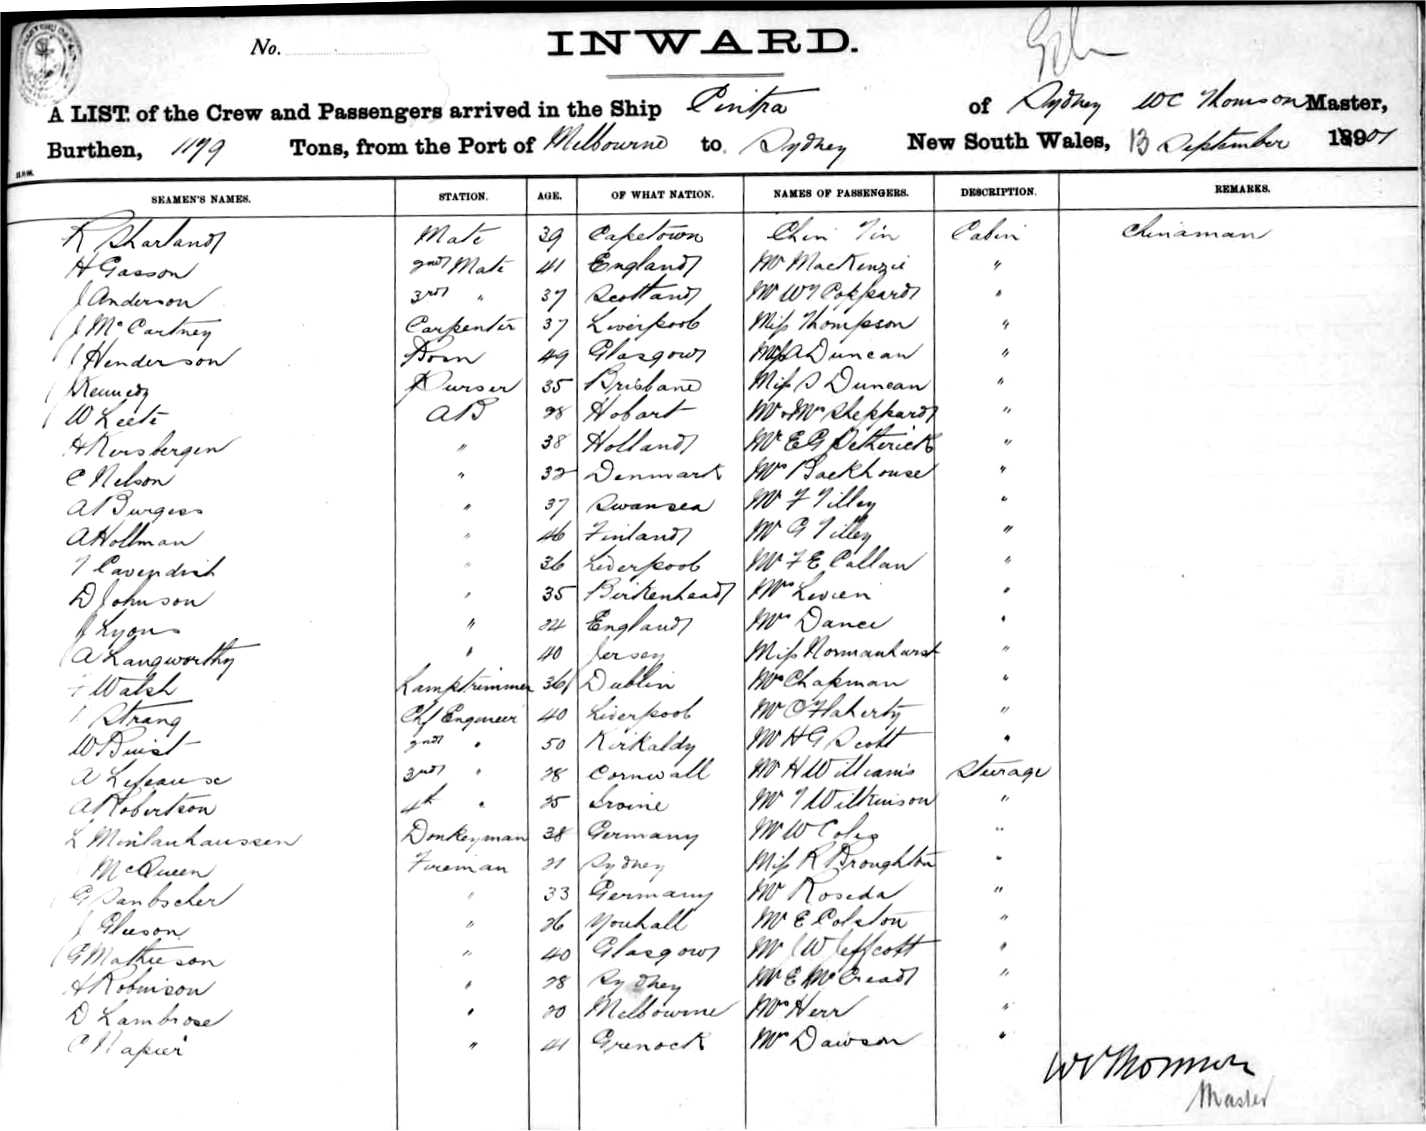 No. INWARD.
A LIST of the Crew and Passengers arrived in the Ship Pintra of Sydney WC Thomson Master,
Burthen, 1179 Tons, from the Port of Melbourne to Sydney New South Wales, 13 September 1901
SEAMEN'S NAMES. STATION. AGE. OF WHAT NATION. NAMES OF PASSENGERS. DESCRIPTION. REMARKS.
R Sharland Mate 39 Capetown Chin Tin Cabin Chinaman
H Gasson 2nd Mate 41 England Mr MacKenzie "
J Anderson 3rd " 37 Scotland Mr WT Coppard "
J McCartney Carpenter 37 Liverpool Miss Thompson "
J Henderson Bosn 49 Glasgow A Duncan "
J Kennedy Purser 35 Brisbane Miss S Duncan "
W Leete AB 28 Hobart Mr & Mrs Sheppard "
H Kersbergen " 38 Holland Mr E G Detherick "
C Nelson " 32 Denmark Mrs Backhouse "
A Burgess " 37 Swansea Mr F Tilley "
A Hollman " 46 Finland Mr G Tilley "
T Cavendish " 36 Liverpool Mr F E Callan "
D Johnson " 35 Birkenhead Mrs Livien "
J Lyons " 24 England Mrs Dance "
A Langworthy " 40 Jersey Miss Normanhurst "
F Walsh Lamptrimmer 36 Dublin Mrs Chapman "
Strang Chf Engineer 40 Liverpool Mr O'Flaherty "
W Buist 2nd " 50 Kirkaldy Mr H G Scott "
A 3rd " 28 Cornwall Mr H Williams Sturage
A Robertson 4th " 25 Irvine Mr T Wilkinson "
L Minlanhaussen Donkeyman 38 Germany Mr W Coles "
McQueen Fireman 21 Sydney Miss R Broughton "
G Sanbscher " 33 Germany Mr Roseda "
J Gleeson " 26 Youhall Mr E Colston "
G Mathieson " 40 Glasgow Mr J W Jeffcott "
H Robinson " 28 Sydney Mr E McCread "
D Lambrose " 20 Melbourne Mrs Herr "
C Napier " 41 Grenock Mr Dawson "
WC Thomson
Master